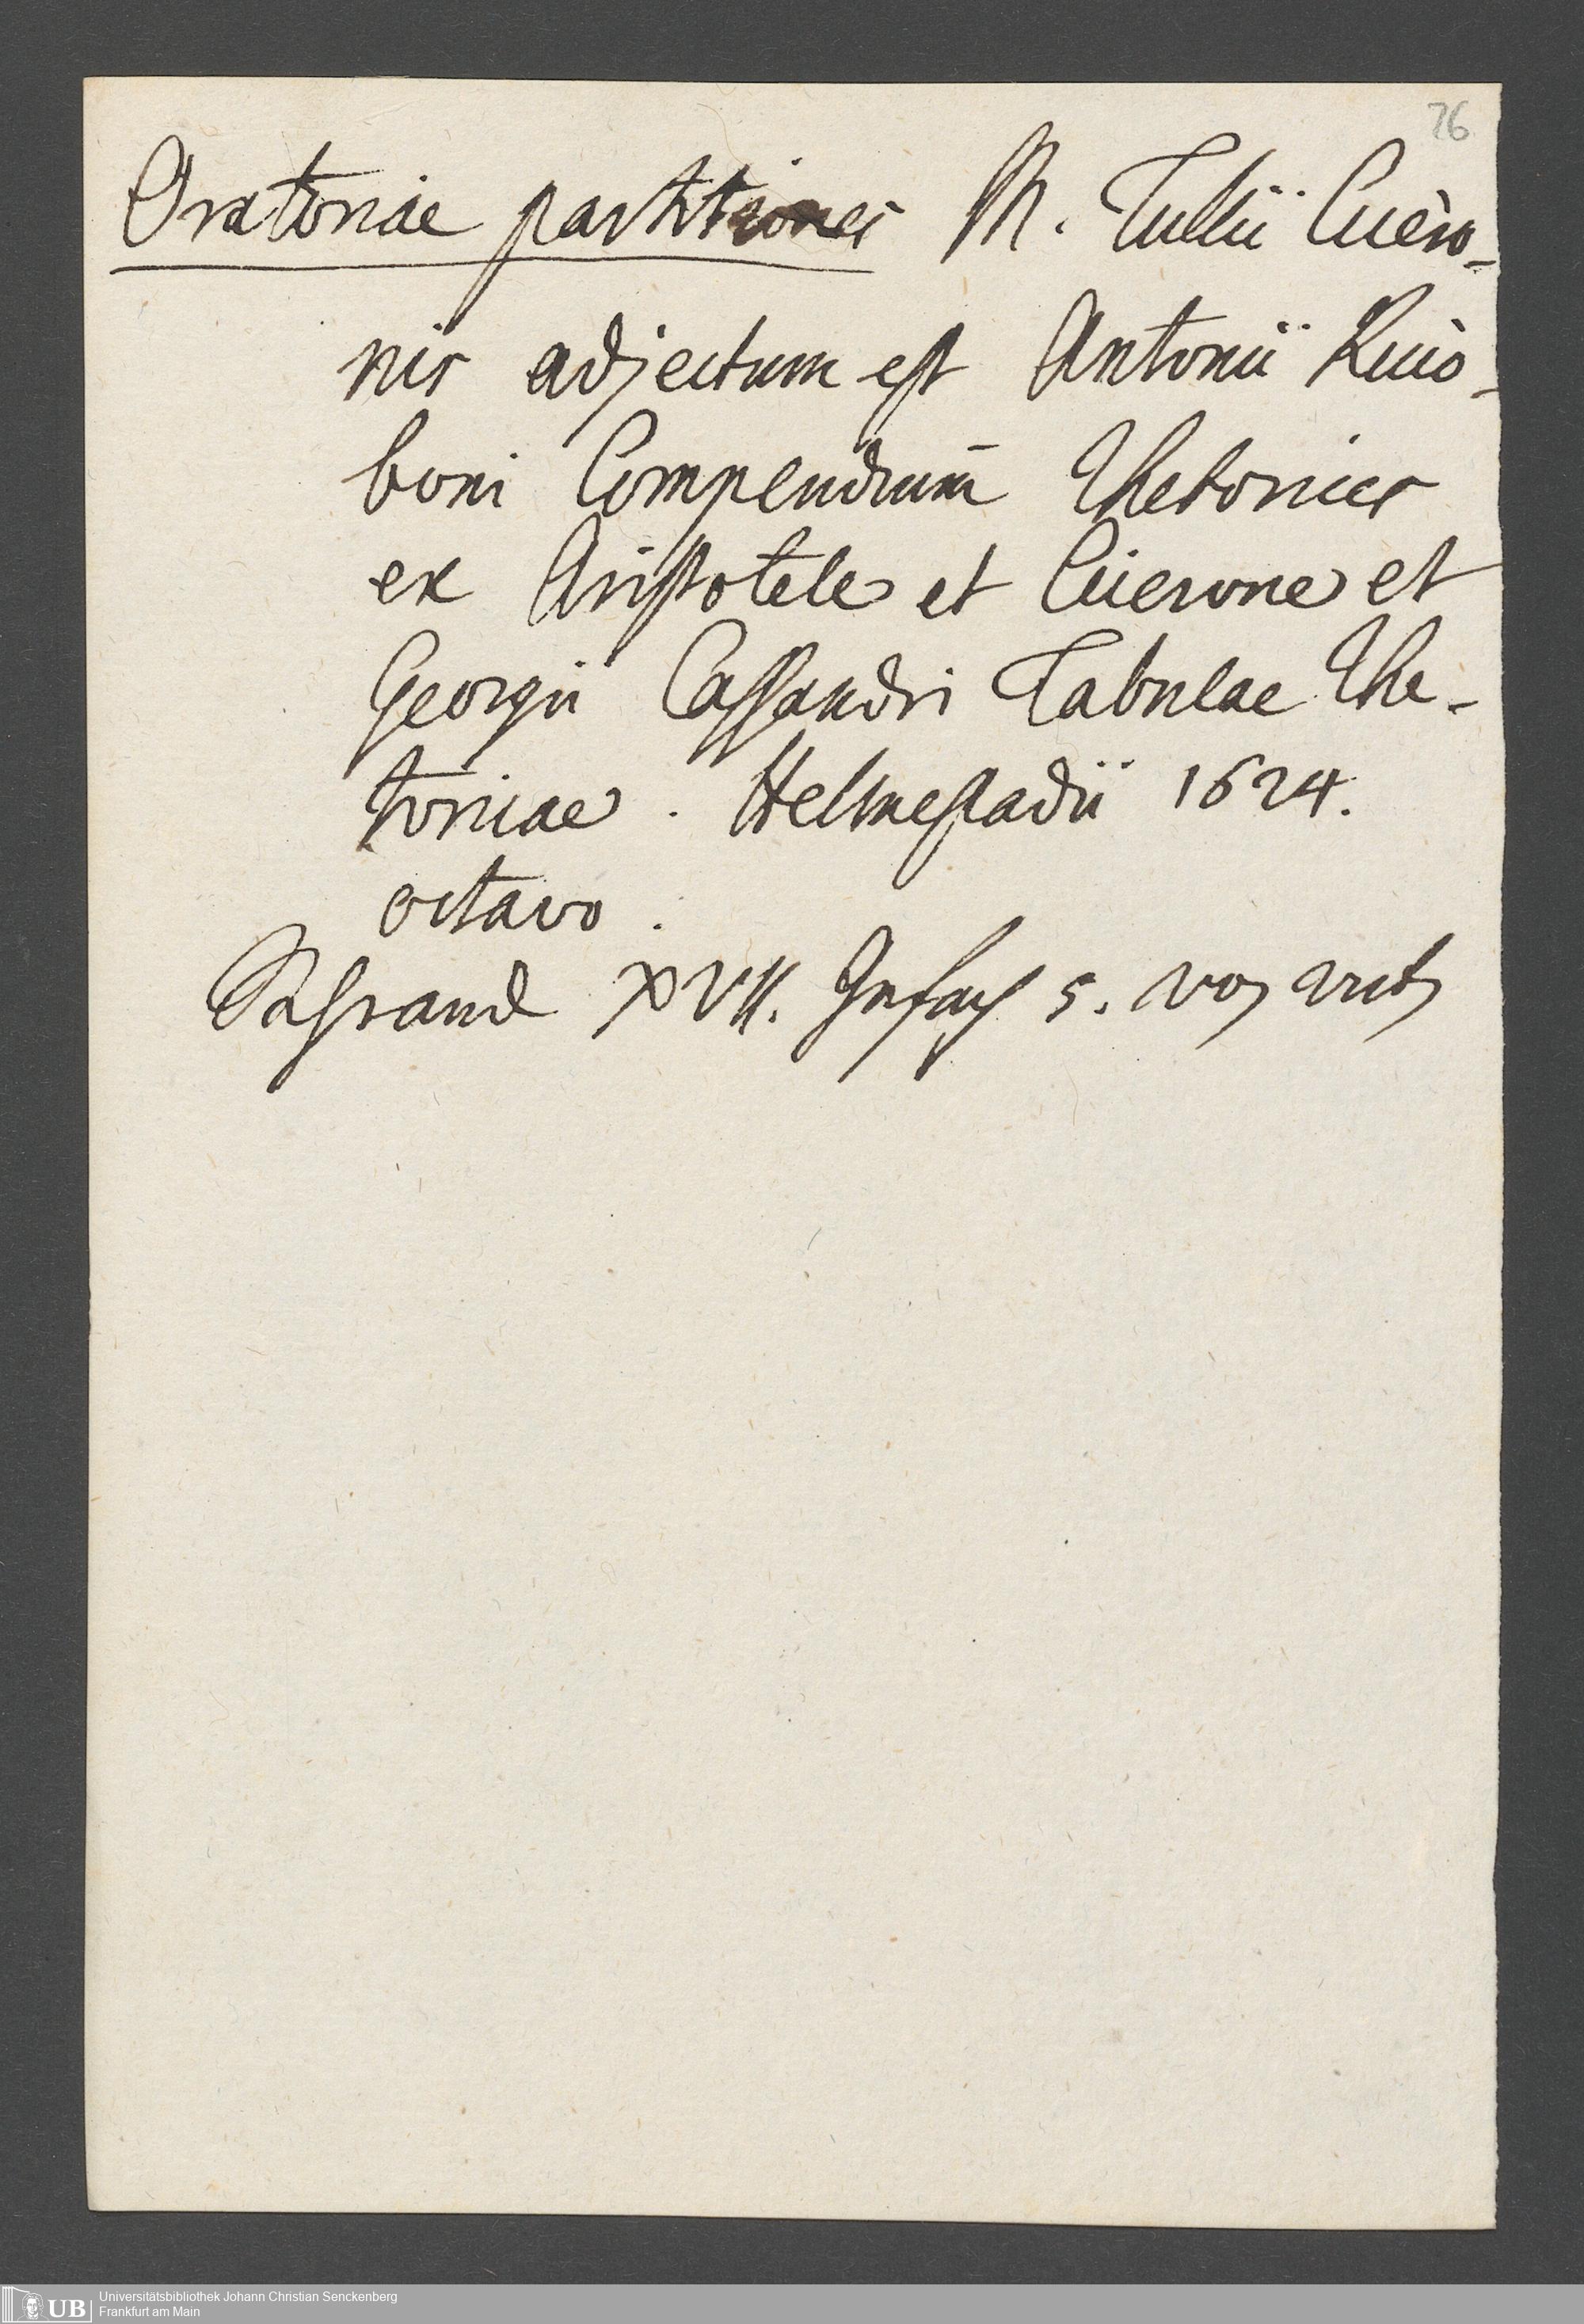 76
Oratoriae partitiones M. Tullii Cicero-
nis adjectum est Antonii Ricco-
boni Compendium Rhetorices
ex Aristotele et Cicerone et
Georgii Cassandri Tabulae Rhe-
toricae. Helmestadii 1624.
octavo.
Schrank XVII. Gefach 5. von unten
UB Universitätsbibliothek Johann Christian Senckenberg
Frankfurt am Main